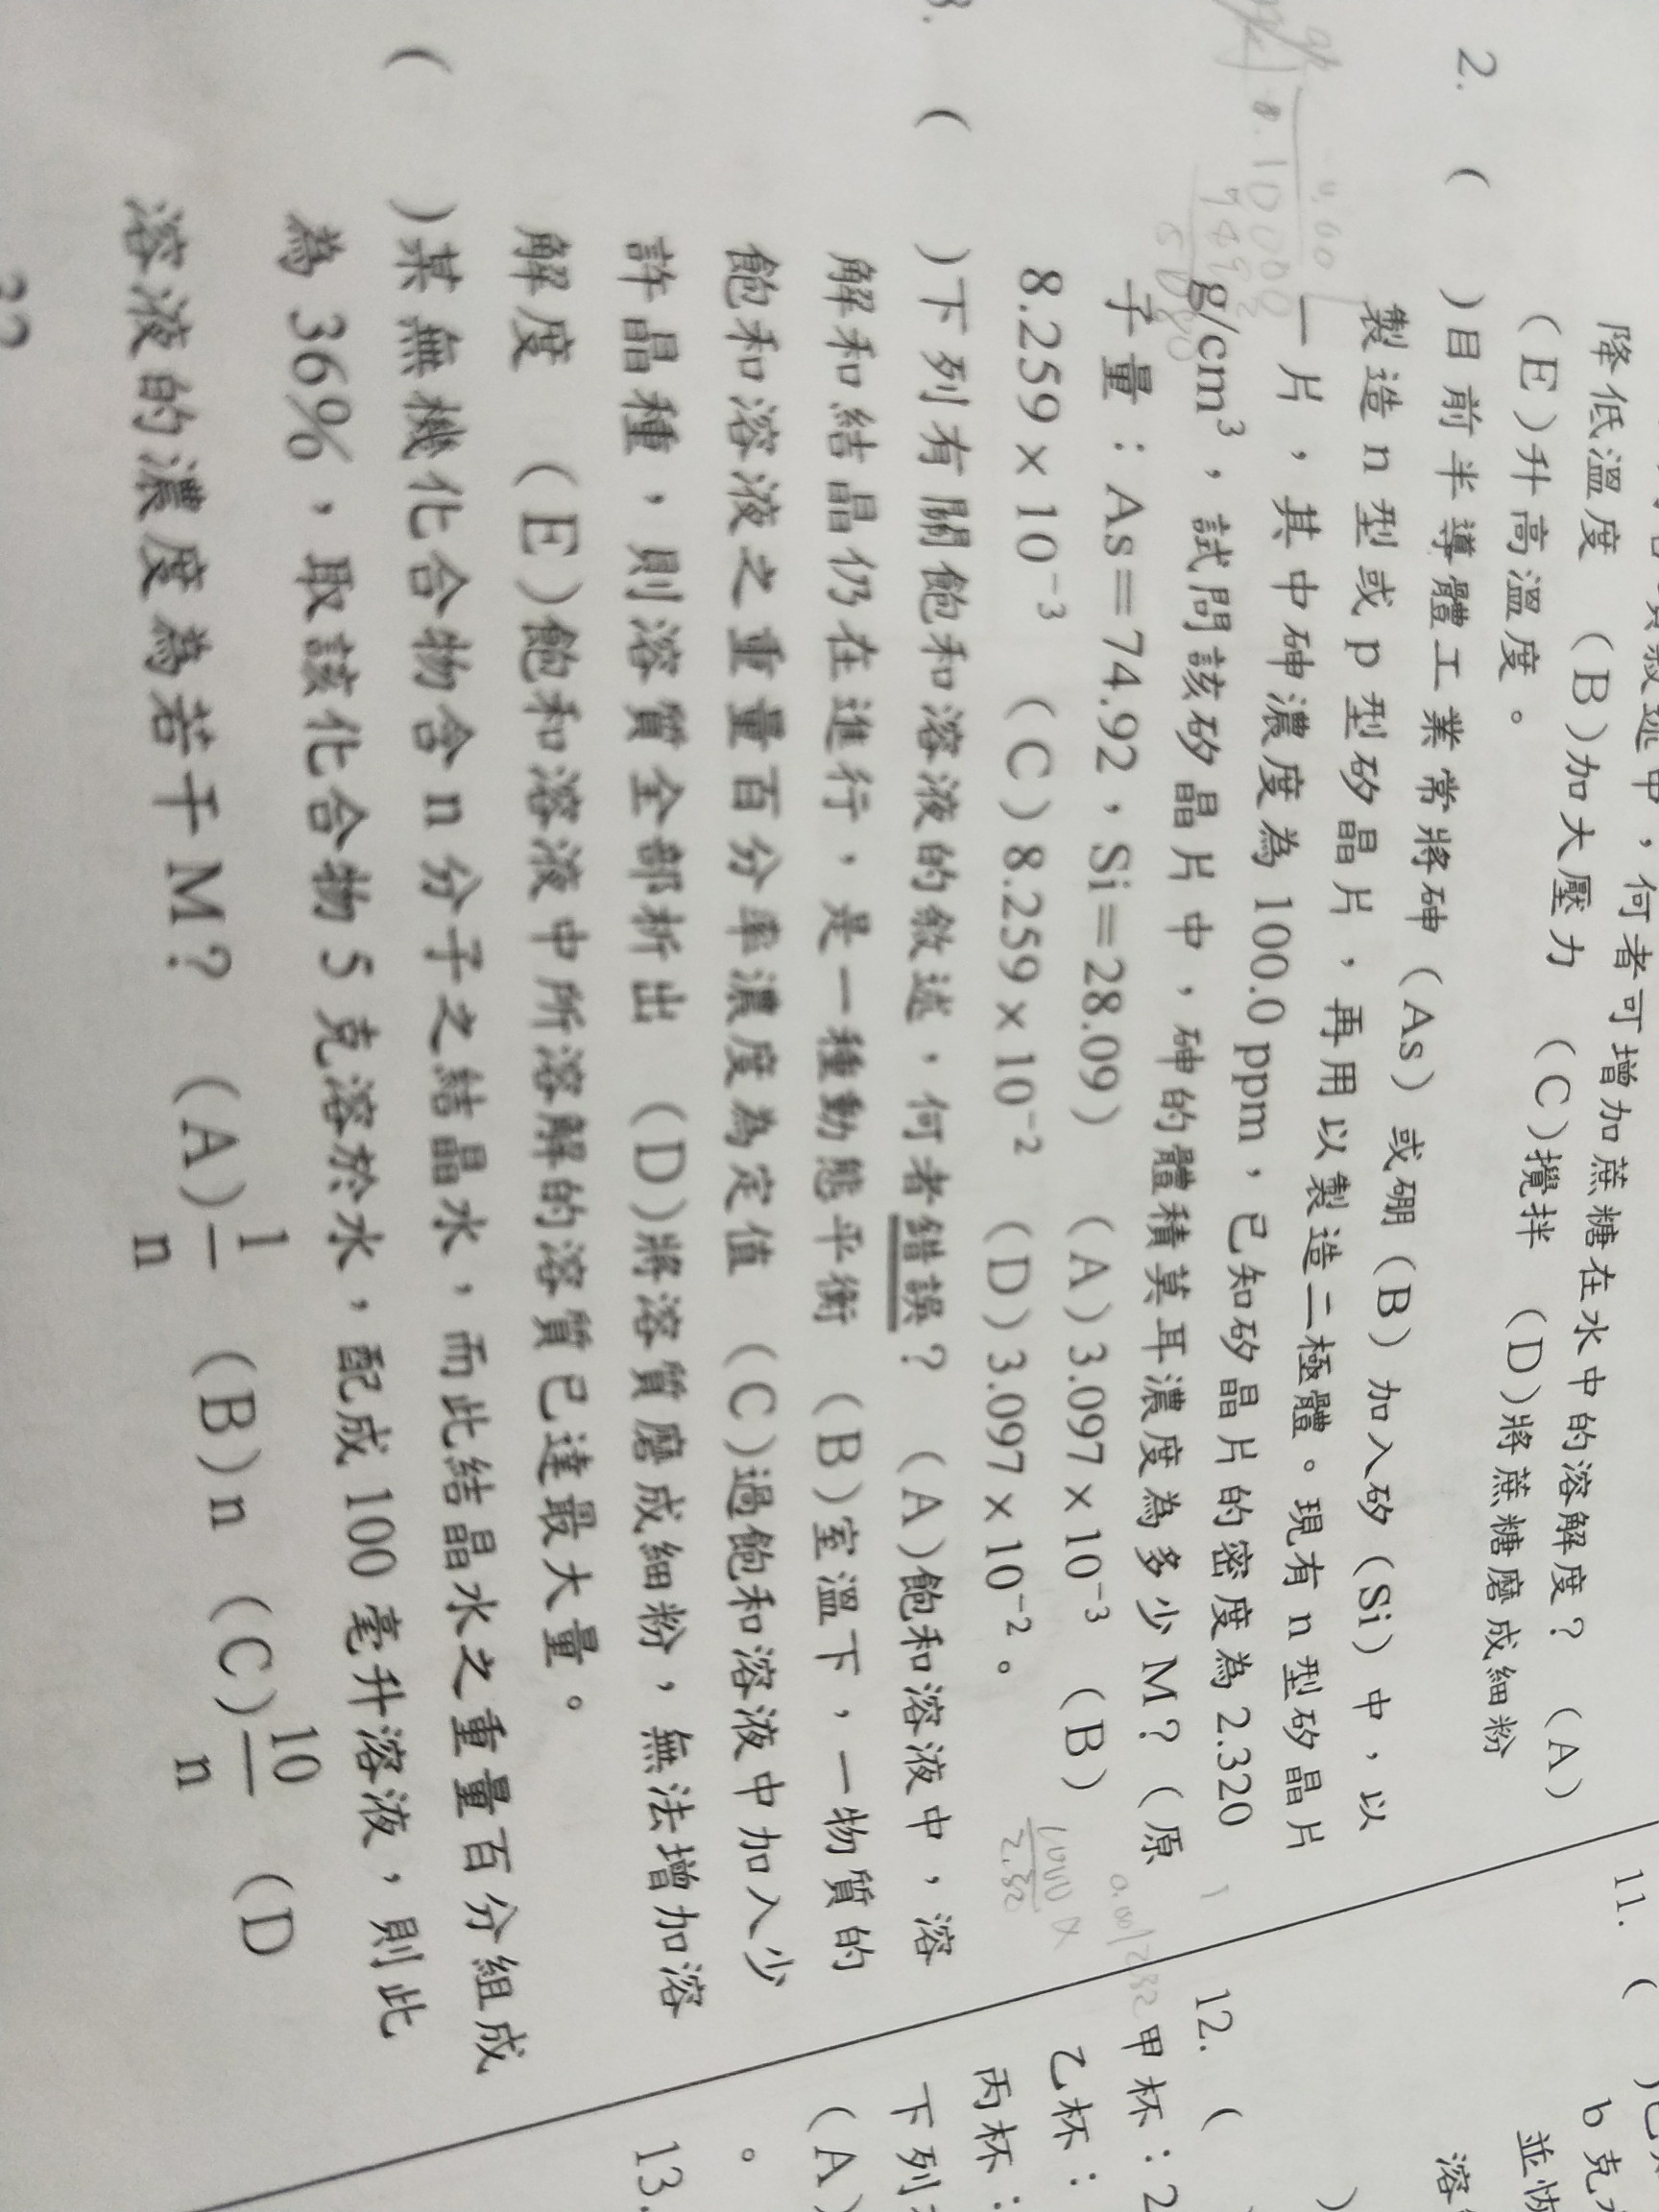 增加蔗糖在水中的溶解度？ (A)
降低溫度 (B)加大壓力 (C)攪拌 (D)將蔗糖磨成細粉
(E)升高溫度。
2. ( )目前半導體工業常將砷(As)或硼(B)加入矽(Si)中，以
製造n型或p型矽晶片，再用以製造二極體。現有n型矽晶片
一片，其中砷濃度為100.0 ppm，已知矽晶片的密度為2.320
g/cm³，試問該矽晶片中，砷的體積莫耳濃度為多少M？(原
子量：As＝74.92，Si＝28.09) (A)3.097×10⁻³ (B)
8.259×10⁻³ (C)8.259×10⁻² (D)3.097×10⁻²。
3. ( )下列有關飽和溶液的敘述，何者錯誤？ (A)飽和溶液中，溶
解和結晶仍在進行，是一種動態平衡 (B)室溫下，一物質的
飽和溶液之重量百分率濃度為定值 (C)過飽和溶液中加入少
許晶種，則溶質全部析出 (D)將溶質磨成細粉，無法增加溶
解度 (E)飽和溶液中所溶解的溶質已達最大量。
( )某無機化合物含n分子之結晶水，而此結晶水之重量百分組成
為36%，取該化合物5克溶於水，配成100毫升溶液，則此
溶液的濃度為若干M？ (A)1/n (B)n (C)10/n (D
11. (
b克
並恢
12. ( )
甲杯：2
乙杯：
丙杯：
下列
(A)
。
13.